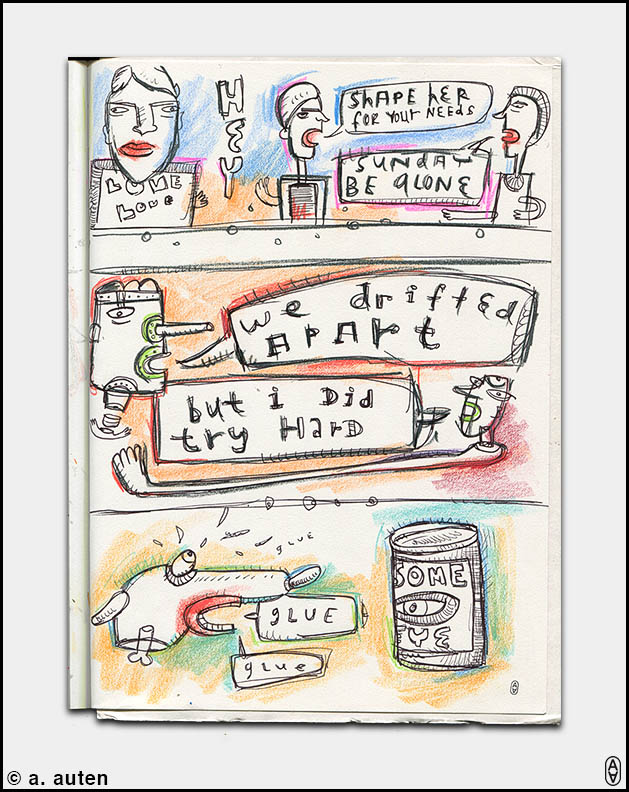 HEY
SHAPE HER
FOR YOUR NEEDS
LOVE
LOVE
SUNDAY
BE ALONE
we drifted
APArt
but i DiD
try HarD
GLUE
SOME
GLUE
YE
gLue
© a. auten